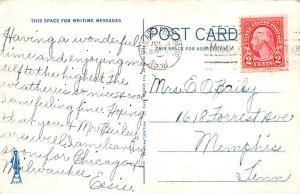 THIS SPACE FOR WRITING MESSAGES
POST CARD
THIS SPACE FOR ADDRESS
Having a wonderful
time and enjoying my
self to the highest. The
weather is nice & cool
am feeling fine. Hoping
that you & Mr. Bailey
are well. Am leaving
soon for Chicago &
Milwaukee
Essie
2 CENTS 2
Mrs. E. O. Baily
1618 Forrest Ave
Memphis
Tenn